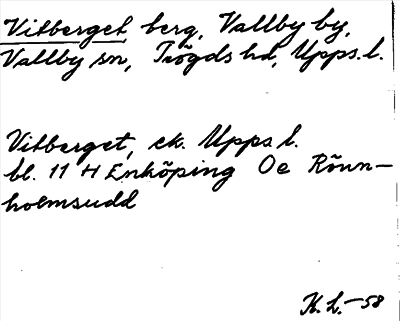 Vitberget berg, Vallby by,
Vallby sn, Trögds hd, Upps. l.
Vitberget, ek. Upps l.
bl. 11 H Enköping Oe Rönn-
holmsudd
K. L. -58